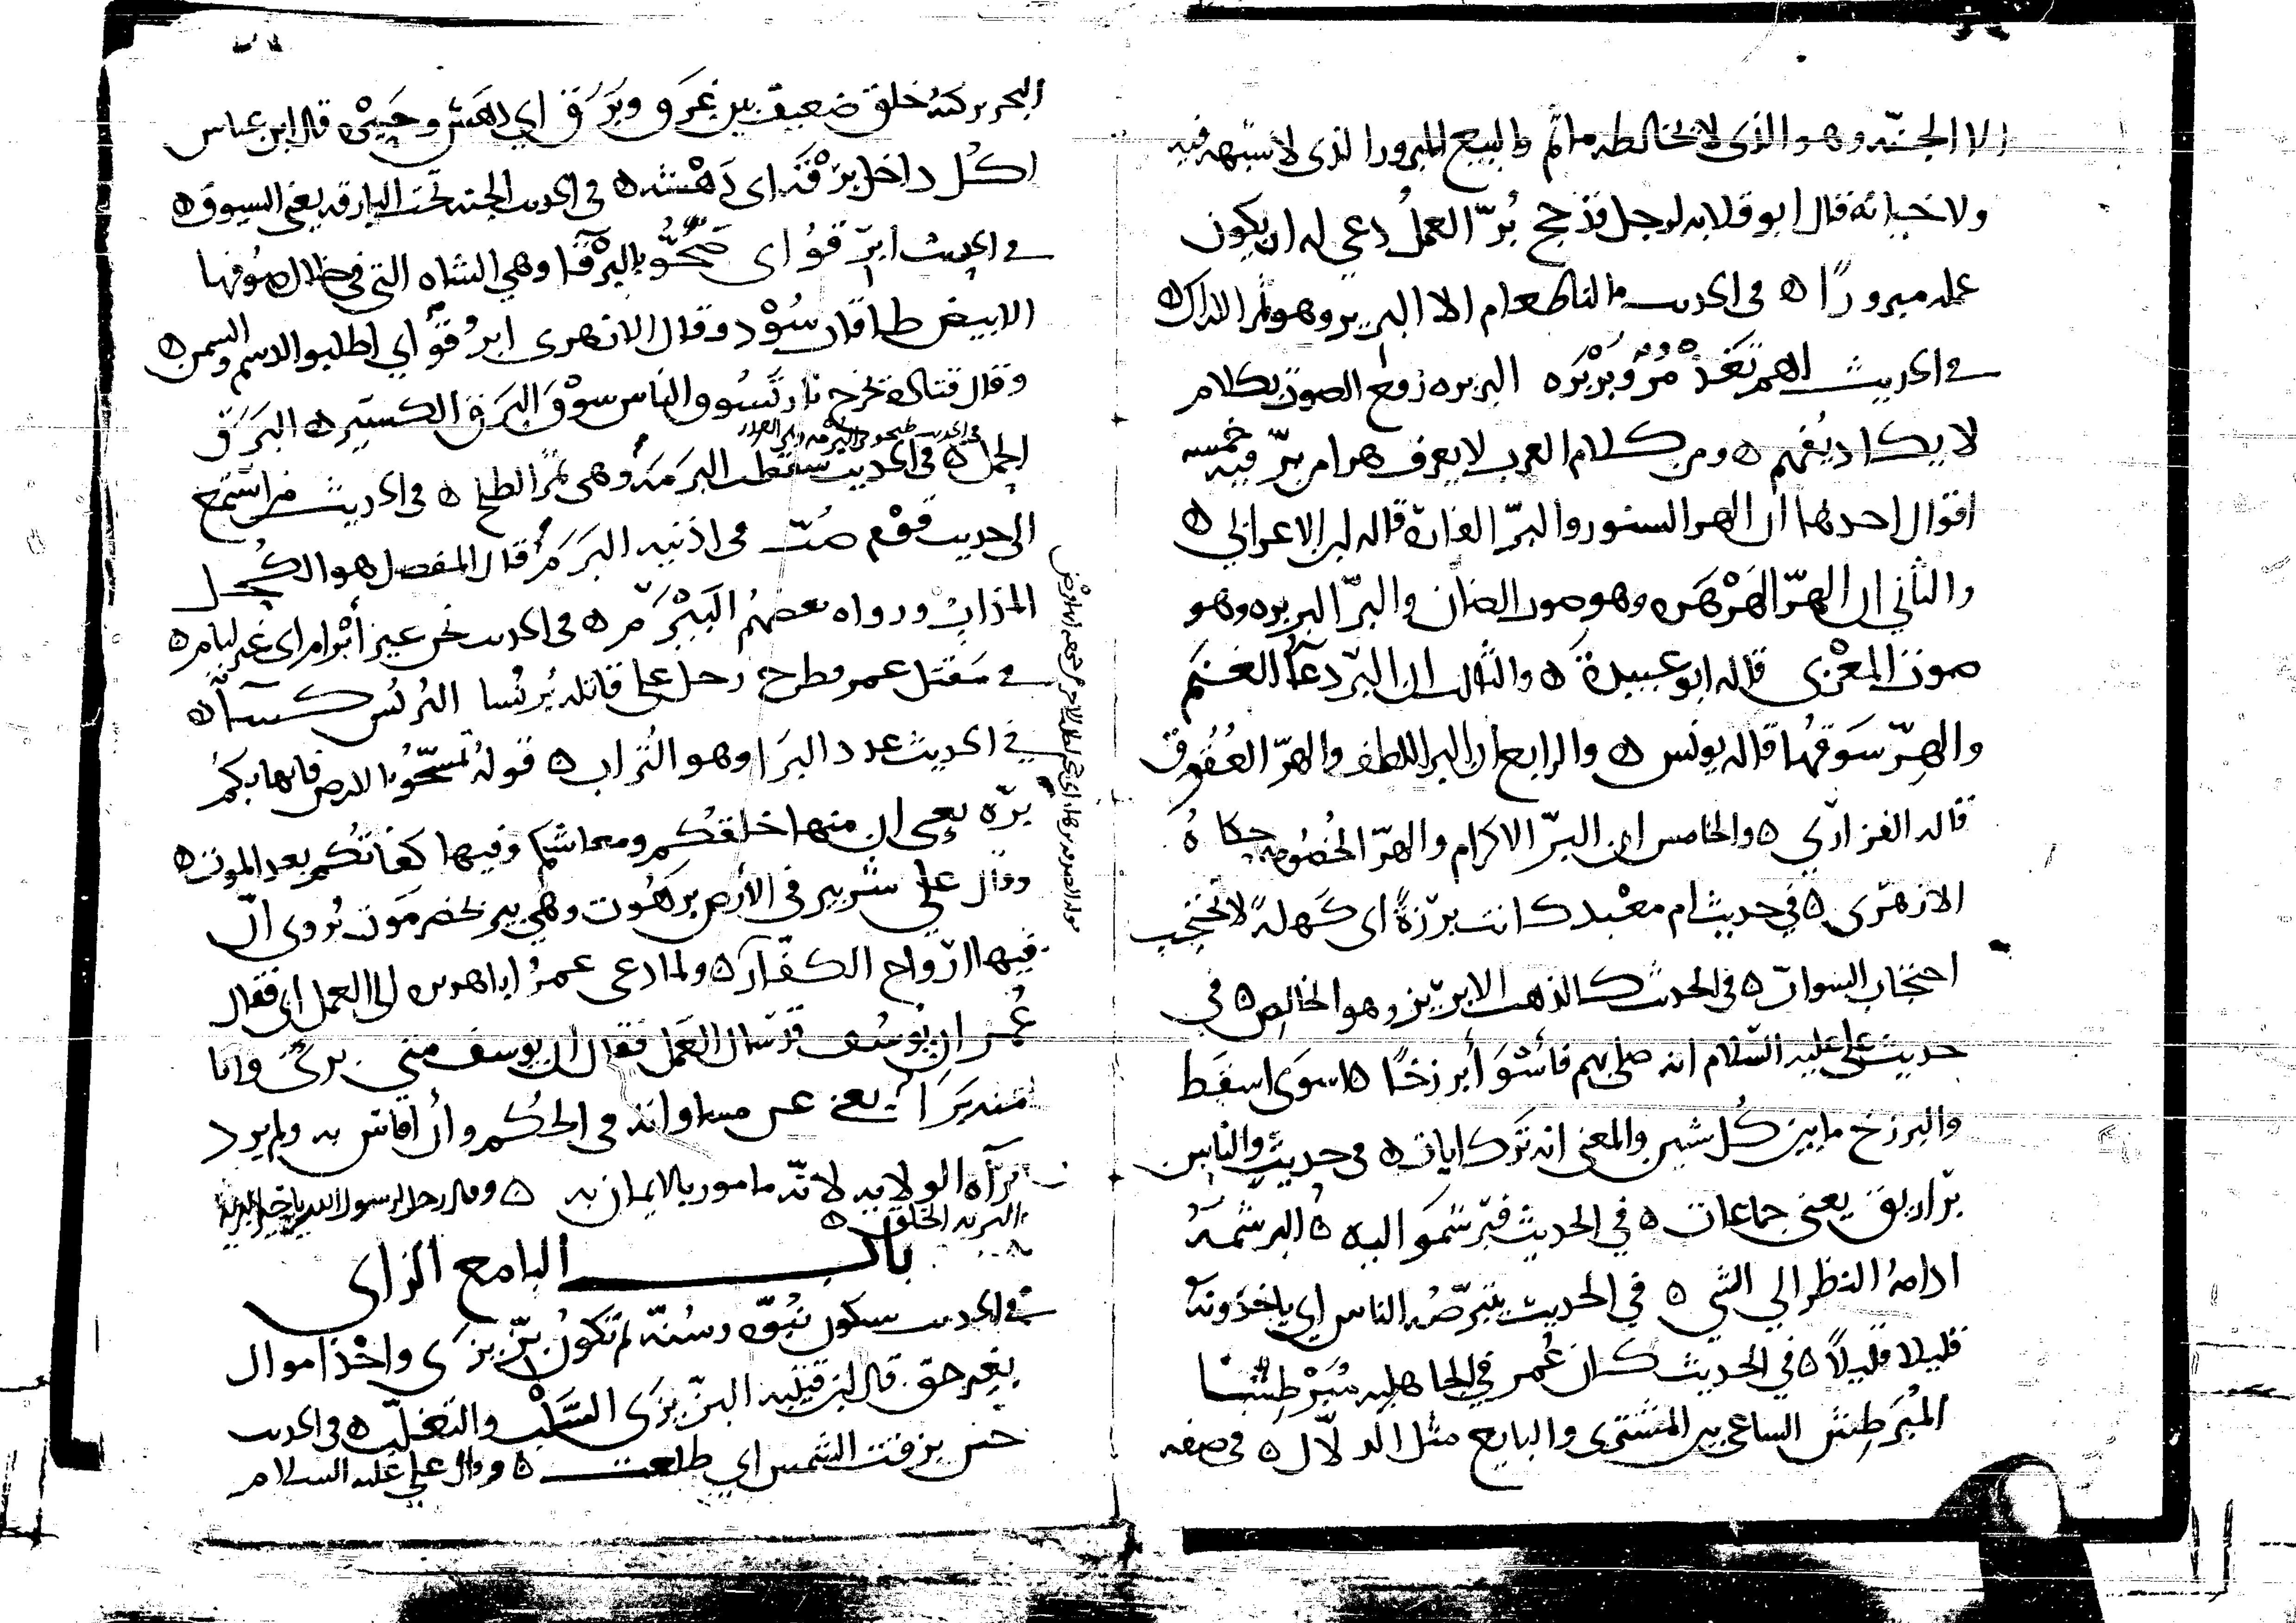 الا الجنة وهو الذي لا يخالطه ماثم والبيع المبرور الذي لا شبهة فيه
ولا خيانة قال ابو قلابه لرجل قد حج بُرّ العملُ دعي له ان يكون
عمله مبرورًا ه في الحديث مالنا طعام الا البرير وهو ثمر الاراك ه
في الحديث لهم تَغَذْمُرٌ وبَرْبَره البربره رفع الصوت بكلام
لا يكاد يُفهم ه ومن كلام العرب لا يعرف هرا من برّ فيه خمسه
اقوال احدها ان الهر السنور والبرّ الفارة قاله ابن الاعرابي ه
والثاني ان الهِرّ الهَرْهَره وهو صوت الضان والبرّ البربره وهو
صوت المعْزى قاله ابو عبيدة ه والثالث ان البرّ دعآ الغنم
والهِرّ سَوقُها قاله يونس ه والرابع ان البر اللطف والهرّ العُقُوق
قاله الفزاري ه والخامس ان البرّ الاكرام والهرّ الخُصُومه حكاهُ
الازهري ه في حديث ام معْبد كانت برْزةً اى كَهلةً لا تحتجب
احتجاب الشواب ه في الحديث كالذهب الابريز وهو الخالص ه في
حديث علي عليه السّلام انه صلى بهم فأَسْوَأَ برزخًا ه اسوى اسقط
والبرزخ مابين كُل شيين والمعنى انه ترك ايات ه في حديث والناس
برازيق يعني جماعات ه في الحديث فبرْشَموا اليه ه البرشمة
ادامةُ النظر الي الشي ه في الحديث يتبرّضُه الناس اي ياخذونه
قليلا قليلاً ه في الحديث كان عُمر في الجاهليه مُبَرْطِشًا
المُبَرطِش الساعي بين المشتري والبايع مثل الدلّال ه في صفه
البحر بركبهُ خلق ضعيف بين غَرَق وبَرَق اي دهَش وحَيْرى قال ابن عباس
لكُل داخل برْقَة اى دَهْشه ه في الحديث الجنة تحت البارقه يعني السيوف ه
في الحديث ابرِقُوا اى ضَحُّوا بالبرْقآ وهي الشاه التي في خلال صُوفها
الابيض طاقات سُوْد وقال الازهرى ابرقُوا أي اطلبوا الدسم والسمن ه
وقال قتاده تخرج نار تَسُوق الناس سَوْقَ البَرَق الكسير ه البَرَق
في الحديث
الحمل ه في الحديث سقطت البَرَمَةُ وهى ثمرُ الطلح ه في الحديث من استمع
الى حديث قَوْم صُبّ في اذنيه البَرَمُ قال المفضل هو الكُحل
المذابُ ورواه بعضهُم البَيْرَمُ ه في الحديث نحن غير أَبْرام اى غير ليام ه
في مَقتل عمر فطرح رجل على قاتله بُرنُسا البُرنُس كسآ ه
في الحديث عدد البَرَا وهو التُراب ه قوله تمسّحُوا بالارض فانها بكم
برّه يعني ان منها خلقكُم ومعاشكم وفيها كفاتُكُم بعد الموت ه
وقال علي شر بير في الأرض برَهُوت وهي بير بحضرمَوت يُروى انّ
فيها ارواح الكفّار ه ولما دعى عمرُ اباهريره الى العمل ابى فقال
عُمر ان يُوسُف قد سَال العَمل فقال ان يوسف مني برىٌ وانا
منه بَرَآ يعني عن مساواته في الحُكم وأن اقاس به ولم يرد
برآة الولايه لانّه مامور بالايمان به ه وقال رجل لرسول الله ياخير البريه
البريه الخلق ه
باب البا مع الزاى
في الحديث ستكون نُبُوّه وسُنّه ثم تكونُ بِزّيزَى واخْذ اموال
بغير حق قال ابن قتيبه البِزّيزَى السَلْب والتغلّب ه في الحديث
حين بزغت الشمس اي طلعت ه وقال علي عليه السلام